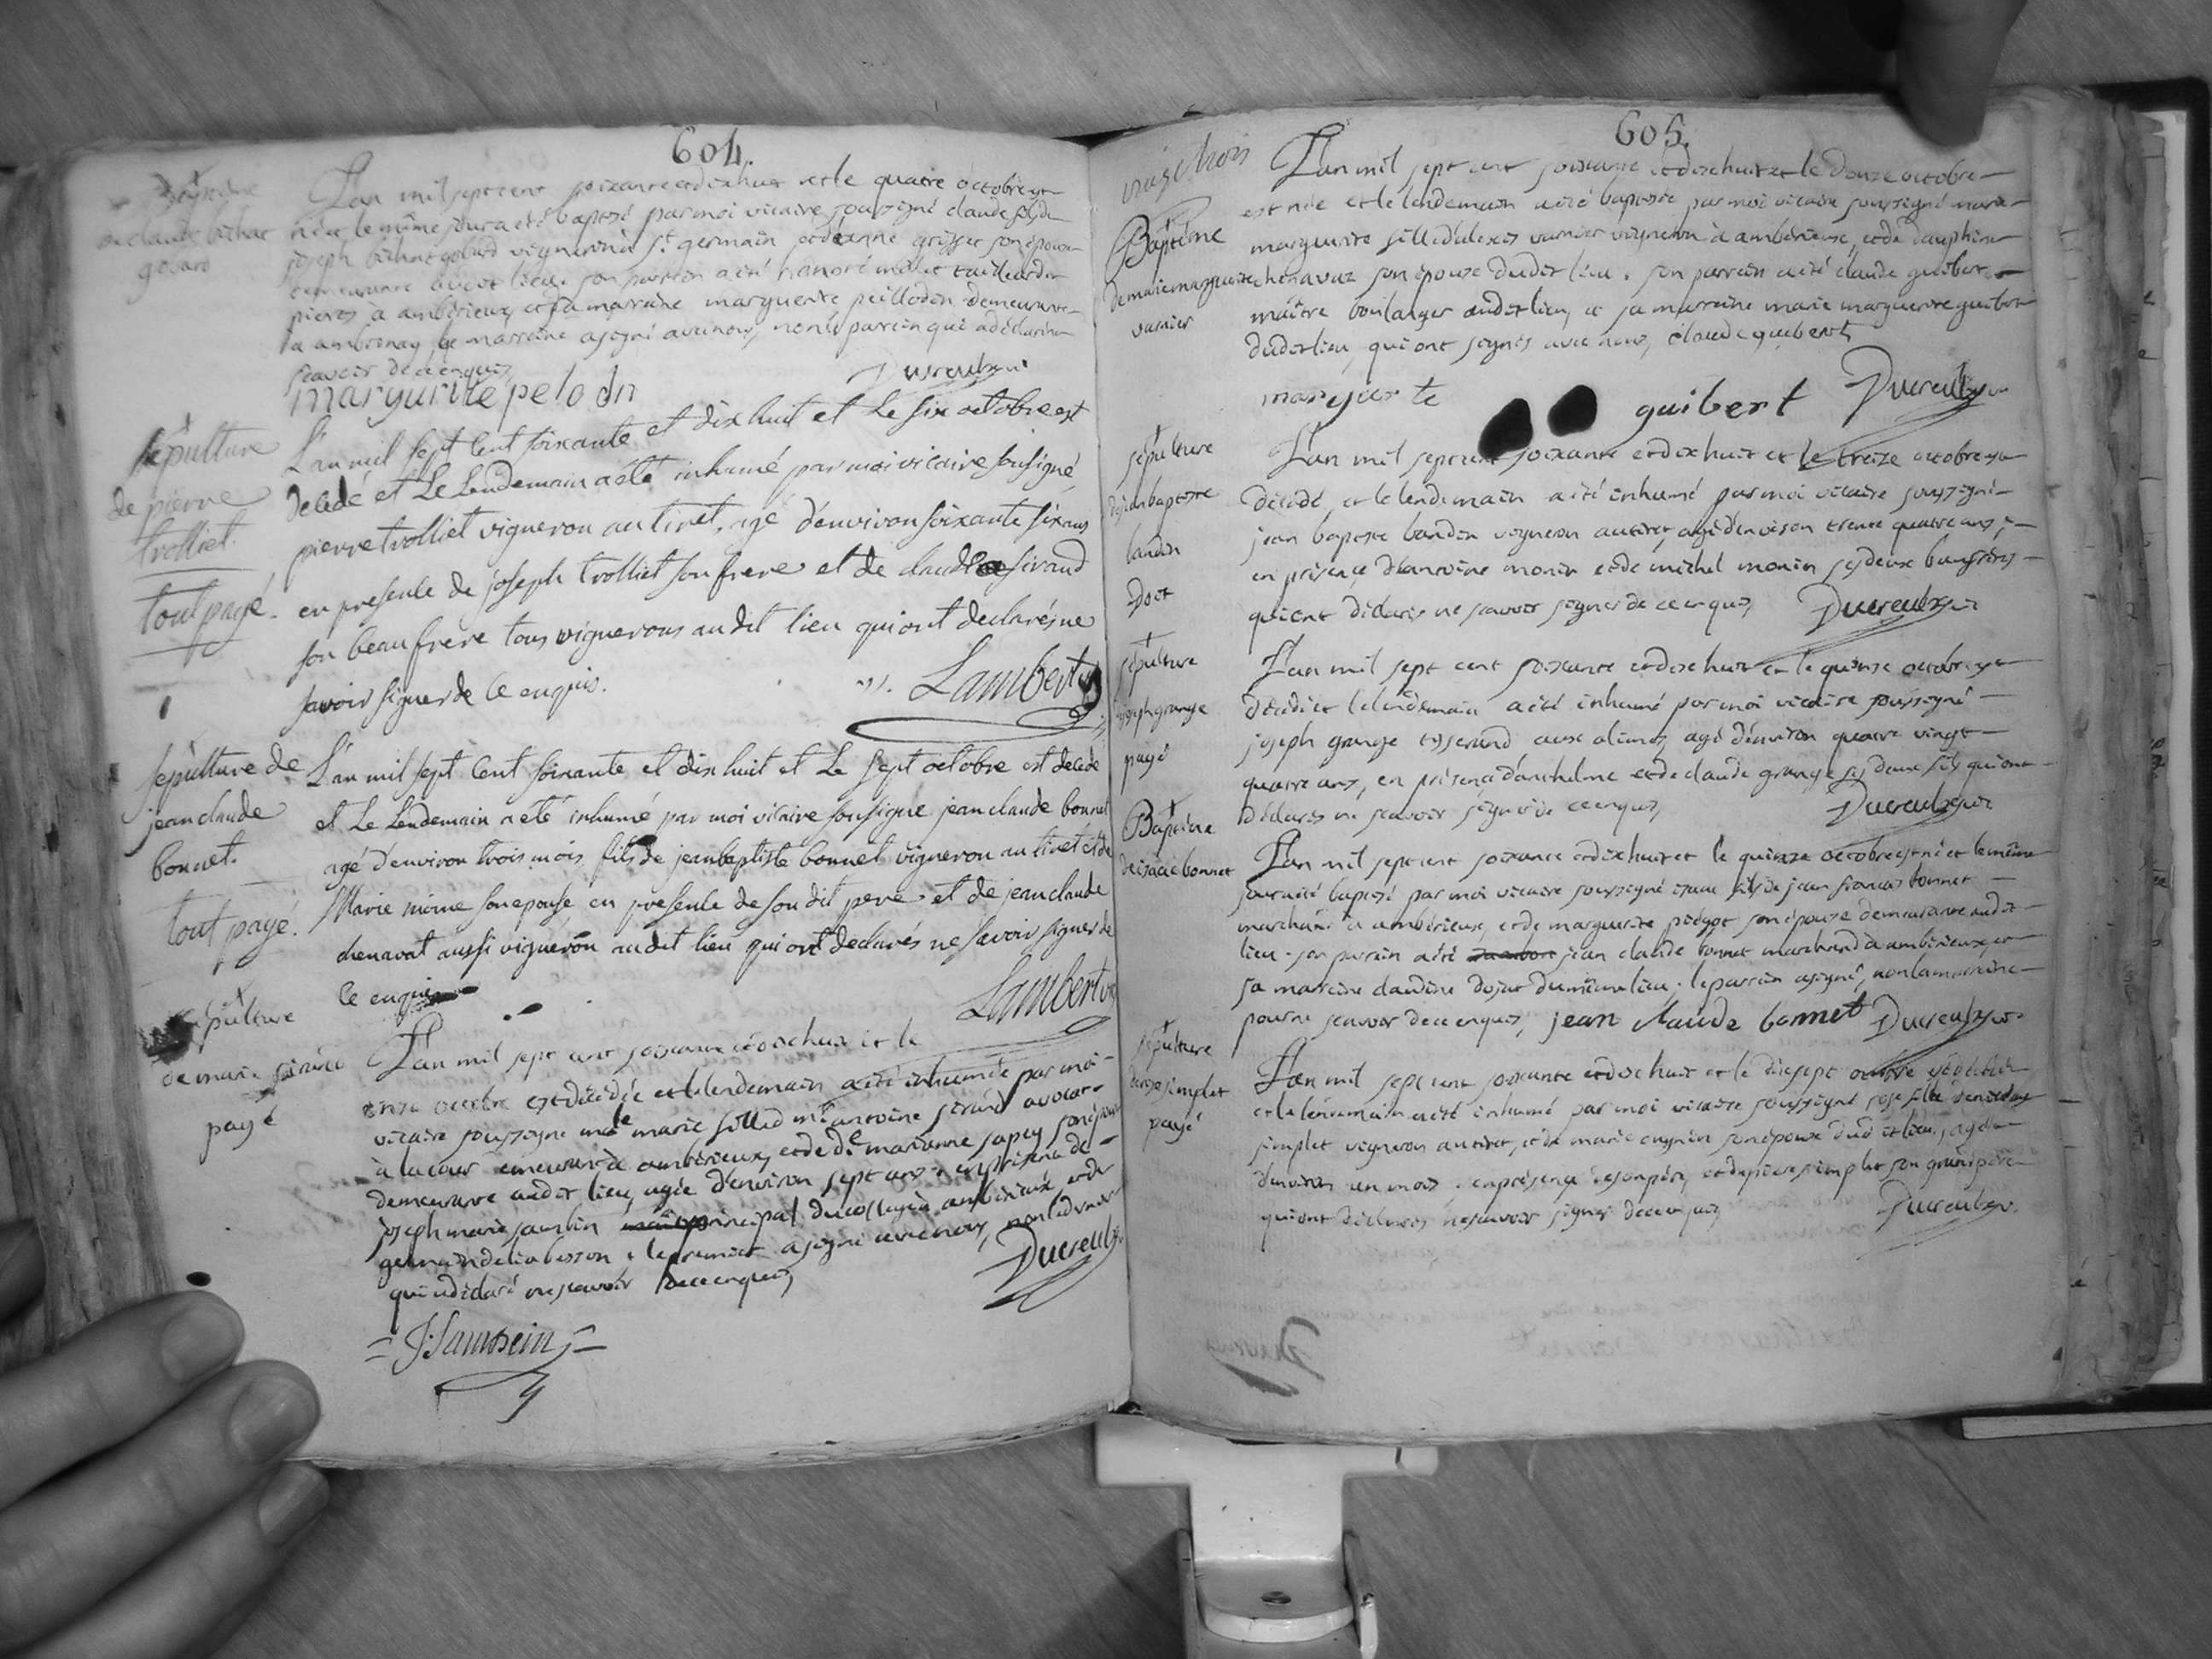 604.
Baptême
de claude bichat
gobard
L'an mil sept cent soixante et dix huit et le quatre octobre est
né et le même jour a été baptisé par moi vicaire soussigné claude fils de
joseph bichat gobard vigneron à st germain et de anne grisser son épouse
demeurante audit lieu. son parrein a été honoré tailleur de
pierres à ambérieux et sa marraine marguerite peillodon demeurante
à ambronay, la marraine a signé avec nous, non le parrein qui a déclaré ne
scavoir de ce enquis
margurite pelodn Ducreult vic.
sépulture
de pierre
trolliet.
tout payé.
L'an mil sept cent soixante et dix huit et le six octobre est
decedé et Le Lendemain a été inhumé par moi vicaire sousigné
pierre trolliet vigneron au tiret, agé d'environ soixante six ans
en presence de joseph trolliet son frere et de claude sirand
son beau frère tous vignerons au dit lieu qui ont declarés ne
savoir signer de ce enquis. Lambert
sepulture de
jean claude
bonnet.
tout payé.
L'an mil sept cent soixante et dix huit et Le sept octobre est decedé
et Le Lendemain a été inhumé par moi vicaire sousigné jean claude bonnet
agé d'environ trois mois fils de jean baptiste bonnet vigneron au tiret et de
Marie son epouse en presence de son dit pere et de jean claude
chenavat aussi vigneron au dit lieu qui ont declarés ne savoir signer de
ce enquis Lambert vic
sépulture
de marie sirand
payé
L'an mil sept cent soixante et dix huit et le
onze octobre est décédée et le lendemain a été inhumée par moi
vicaire soussigné marie fille de mr antoine sirand avocat
à la cour demeurant à ambérieux, et de marianne sapey son épouse
demeurante audit lieu, agée d'environ sept ans. en présence de
joseph marie principal du college à ambérieux et de
germain . le premier a signé avec nous, non le dernier
qui a déclaré ne scavoir de ce enquis Ducreult
605.
vingt trois
Baptême
de marie marguerite
varnier
L'an mil sept cent soixante et dix huit et le douze octobre
est née et le lendemain a été baptisée par moi vicaire soussigné marie
marguerite fille d'alexis varnier vigneron à ambérieux, et de dauphine
chenavaz son épouse dudit lieu. son parrein a été claude guibert
maître boulanger audit lieu, et sa marraine marie marguerite guibert
dudit lieu, qui ont signés avec nous, claude guibert
margurte guibert Ducreult vic
sépulture
de jean baptiste
L'an mil sept cent soixante et dix huit et le treize octobre est
décédé, et le lendemain a été inhumé par moi vicaire soussigné
jean baptiste vigneron au tiret, agé d'environ trente quatre ans,
en présence d'antoine monin et de michel monin ses deux beaufrères
qui ont déclarés ne scavoir signer de ce enquis Ducreult vic
sépulture
joseph grange
payé
L'an mil sept cent soixante et dix huit et le quinze octobre est
décédé et le lendemain a été inhumé par moi vicaire soussigné
joseph grange tisserand aux alimes, agé d'environ quatre vingt
quatre ans, en présence d'anthelme et de claude grange ses deux fils qui ont
déclarés ne scavoir signer de ce enquis Ducreult vic
Baptême
de isaac bonnet
L'an mil sept cent soixante et dix huit et le quinze octobre est né et le même
jour a été baptisé par moi vicaire soussigné isaac fils de jean francois bonnet
marchand à ambérieux, et de marguerite son épouse demeurante audit
lieu. son parrein a été jean claude bonnet marchand à ambérieux, et
sa marraine claudine dujat du même lieu. le parrein a signé, non la marraine
pour ne scavoir de ce enquis, jean claude bonnet Ducreult vic.
sépulture
de rose simplet
payé
L'an mil sept cent soixante et dix huit et le dixsept octobre est décédée
et le lendemain a été inhumée par moi vicaire soussigné rose fille de
simplet vigneron au tiret, et de marie cugnin son épouse dudit lieu, agée
d'environ un mois. en présence de son père, et de pierre simplet son grand père
qui ont déclarés ne scavoir signer de ce enquis Ducreult vic.